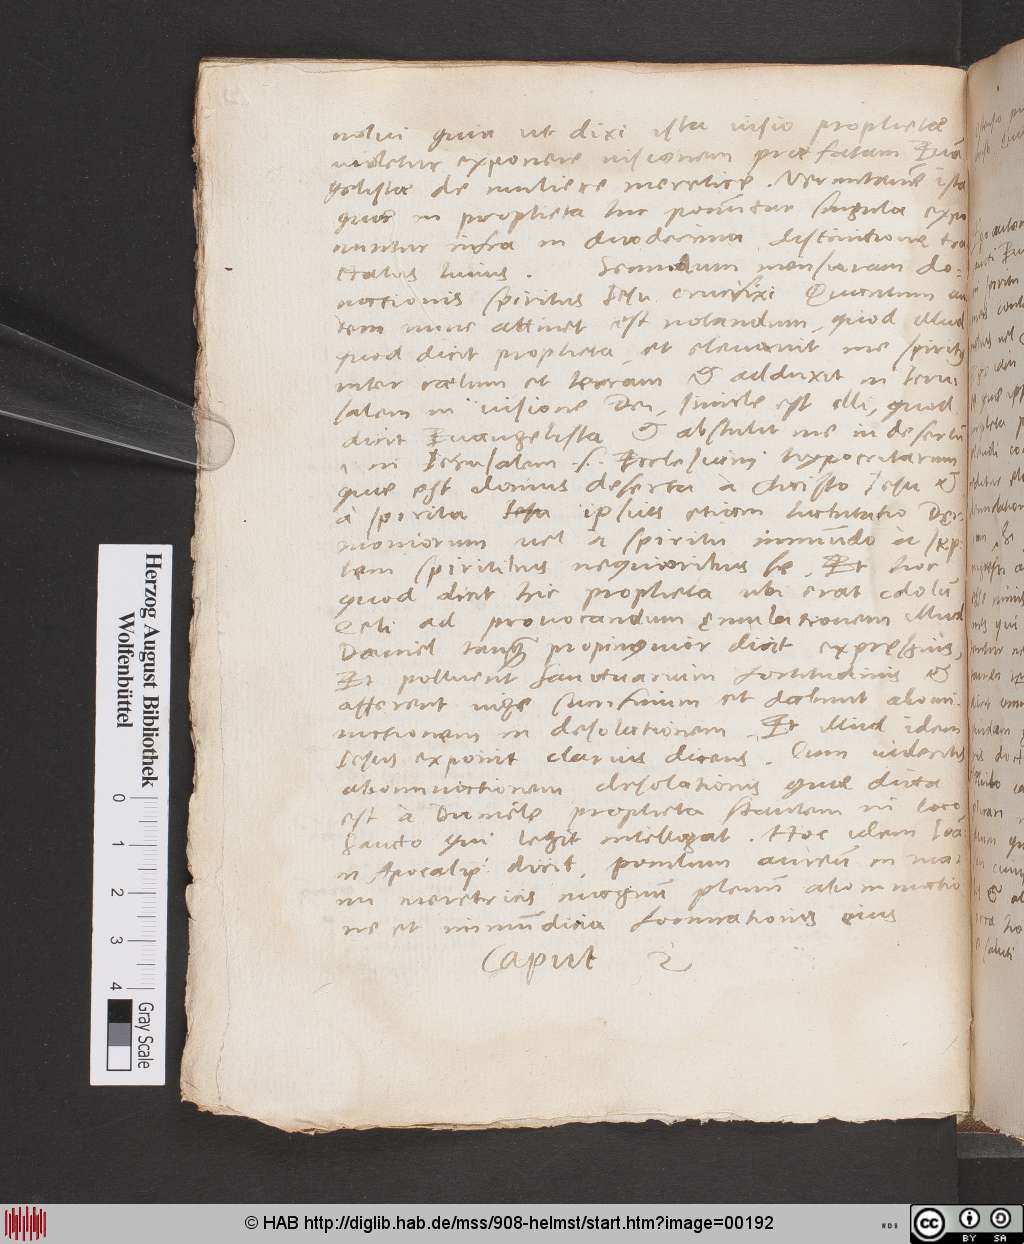 nolui quia ut dixi ista visio prophetæ
videtur exponere visionem præfatam Euā
gelistæ de muliere meretrice. Verumtamē ista
quæ in propheta hic ponūtur singula expo
nuntur infra in duodecima distinctione tra
ctatus huius. Secundum mensuram do=
nationis spiritus Iesu crucifixi Quantum au
tem nunc attinet est notandum, quod illud
quod dicit propheta, et elevavit me spiritus
inter cælum et terram & adduxit in Ieru
salem in visione Dei, simile est illi, quod
dicit Euangelista & abstulit me in desertū
in Ierusalem .s. Ecclesiam hypocritarum
quæ est domus deserta à Christo Iesu &
à spiritu Iesu ipsius etiam habitatio Dęe
moniorum vel à spiritu immūdo à sep
tem spiritibus nequioribus se. Et hoc
quod dicit hic propheta ubi erat idolū
zeli ad provocandum ęmulationem illud
Daniel tanq̄ propinquior dicit expressius,
Et polluent sanctuarium fortitudinis &
afferent iuge sacrificium et dabunt abomi-
nationem in desolationem. Et illud idem
Iesus exponit clarius dicens. Cum videritis
abominationem desolationis quæ dicta
est à Daniele propheta stantem in loco
sancto qui legit intelligat. Hoc idem Ioā
in Apocalip: dicit, poculum aureū in ma
nu meretricis magnū plenū abominatio
ne et immūdicia fornicationis eius
Caput 2
Herzog August Bibliothek
Wolfenbüttel
0 1 2 3 4
Gray Scale
© HAB http://diglib.hab.de/mss/908-helmst/start.htm?image=00192
WDB
cc BY SA